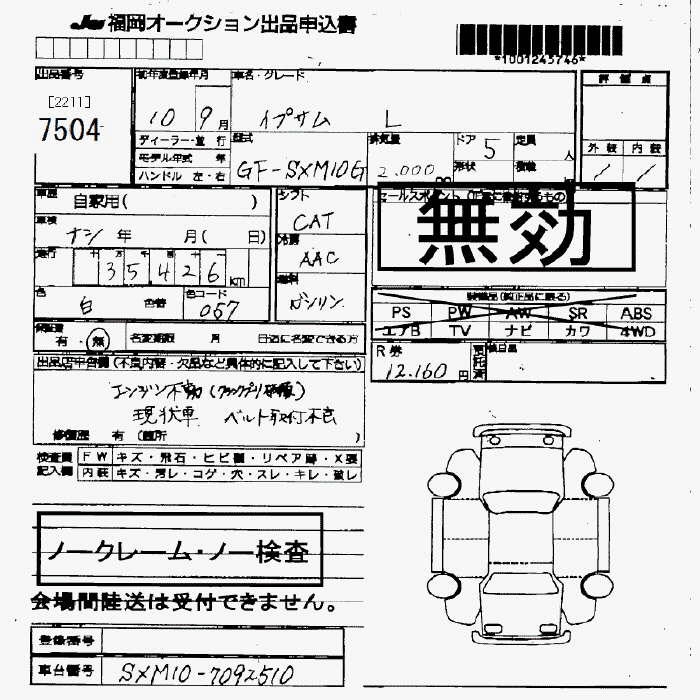 JU 福岡オークション出品申込書
*1001245746*
出品番号
[2211]
7504
初年度登録年月
10 9月
車名・グレード
イプサム L
評価点
外装 内装
ディーラー・並行
モデル年式 年
ハンドル 左・右
型式
GF-SXM10G
排気量
2.000cc
ドア 5
形状
定員 人
積載
車歴
自家用( )
車検
ナシ 年 月( 日)
走行
35,426km
色
白
色替
色コード
057
シフト
CAT
冷房
AAC
燃料
ガソリン
セールスポイント(正確に書けるもの)
無効
装備品(純正品に限る)
PS PW AW SR ABS
エアB TV ナビ カワ 4WD
保証書
有・無
名変期限 月 日迄に名変できる方
R券
12.160円
出品店申告欄(不良内容・欠品など具体的に記入して下さい)
エンジン不動(クランクプーリ破損)
現状車 ベルト取付不良
修復歴 有(箇所 )
検査員記入欄
FW キズ・飛石・ヒビ割・リペア跡・X張
内装 キズ・汚レ・コゲ・穴・スレ・キレ・破レ
ノークレーム・ノー検査
会場間陸送は受付できません。
登録番号
車台番号 SXM10-7092510